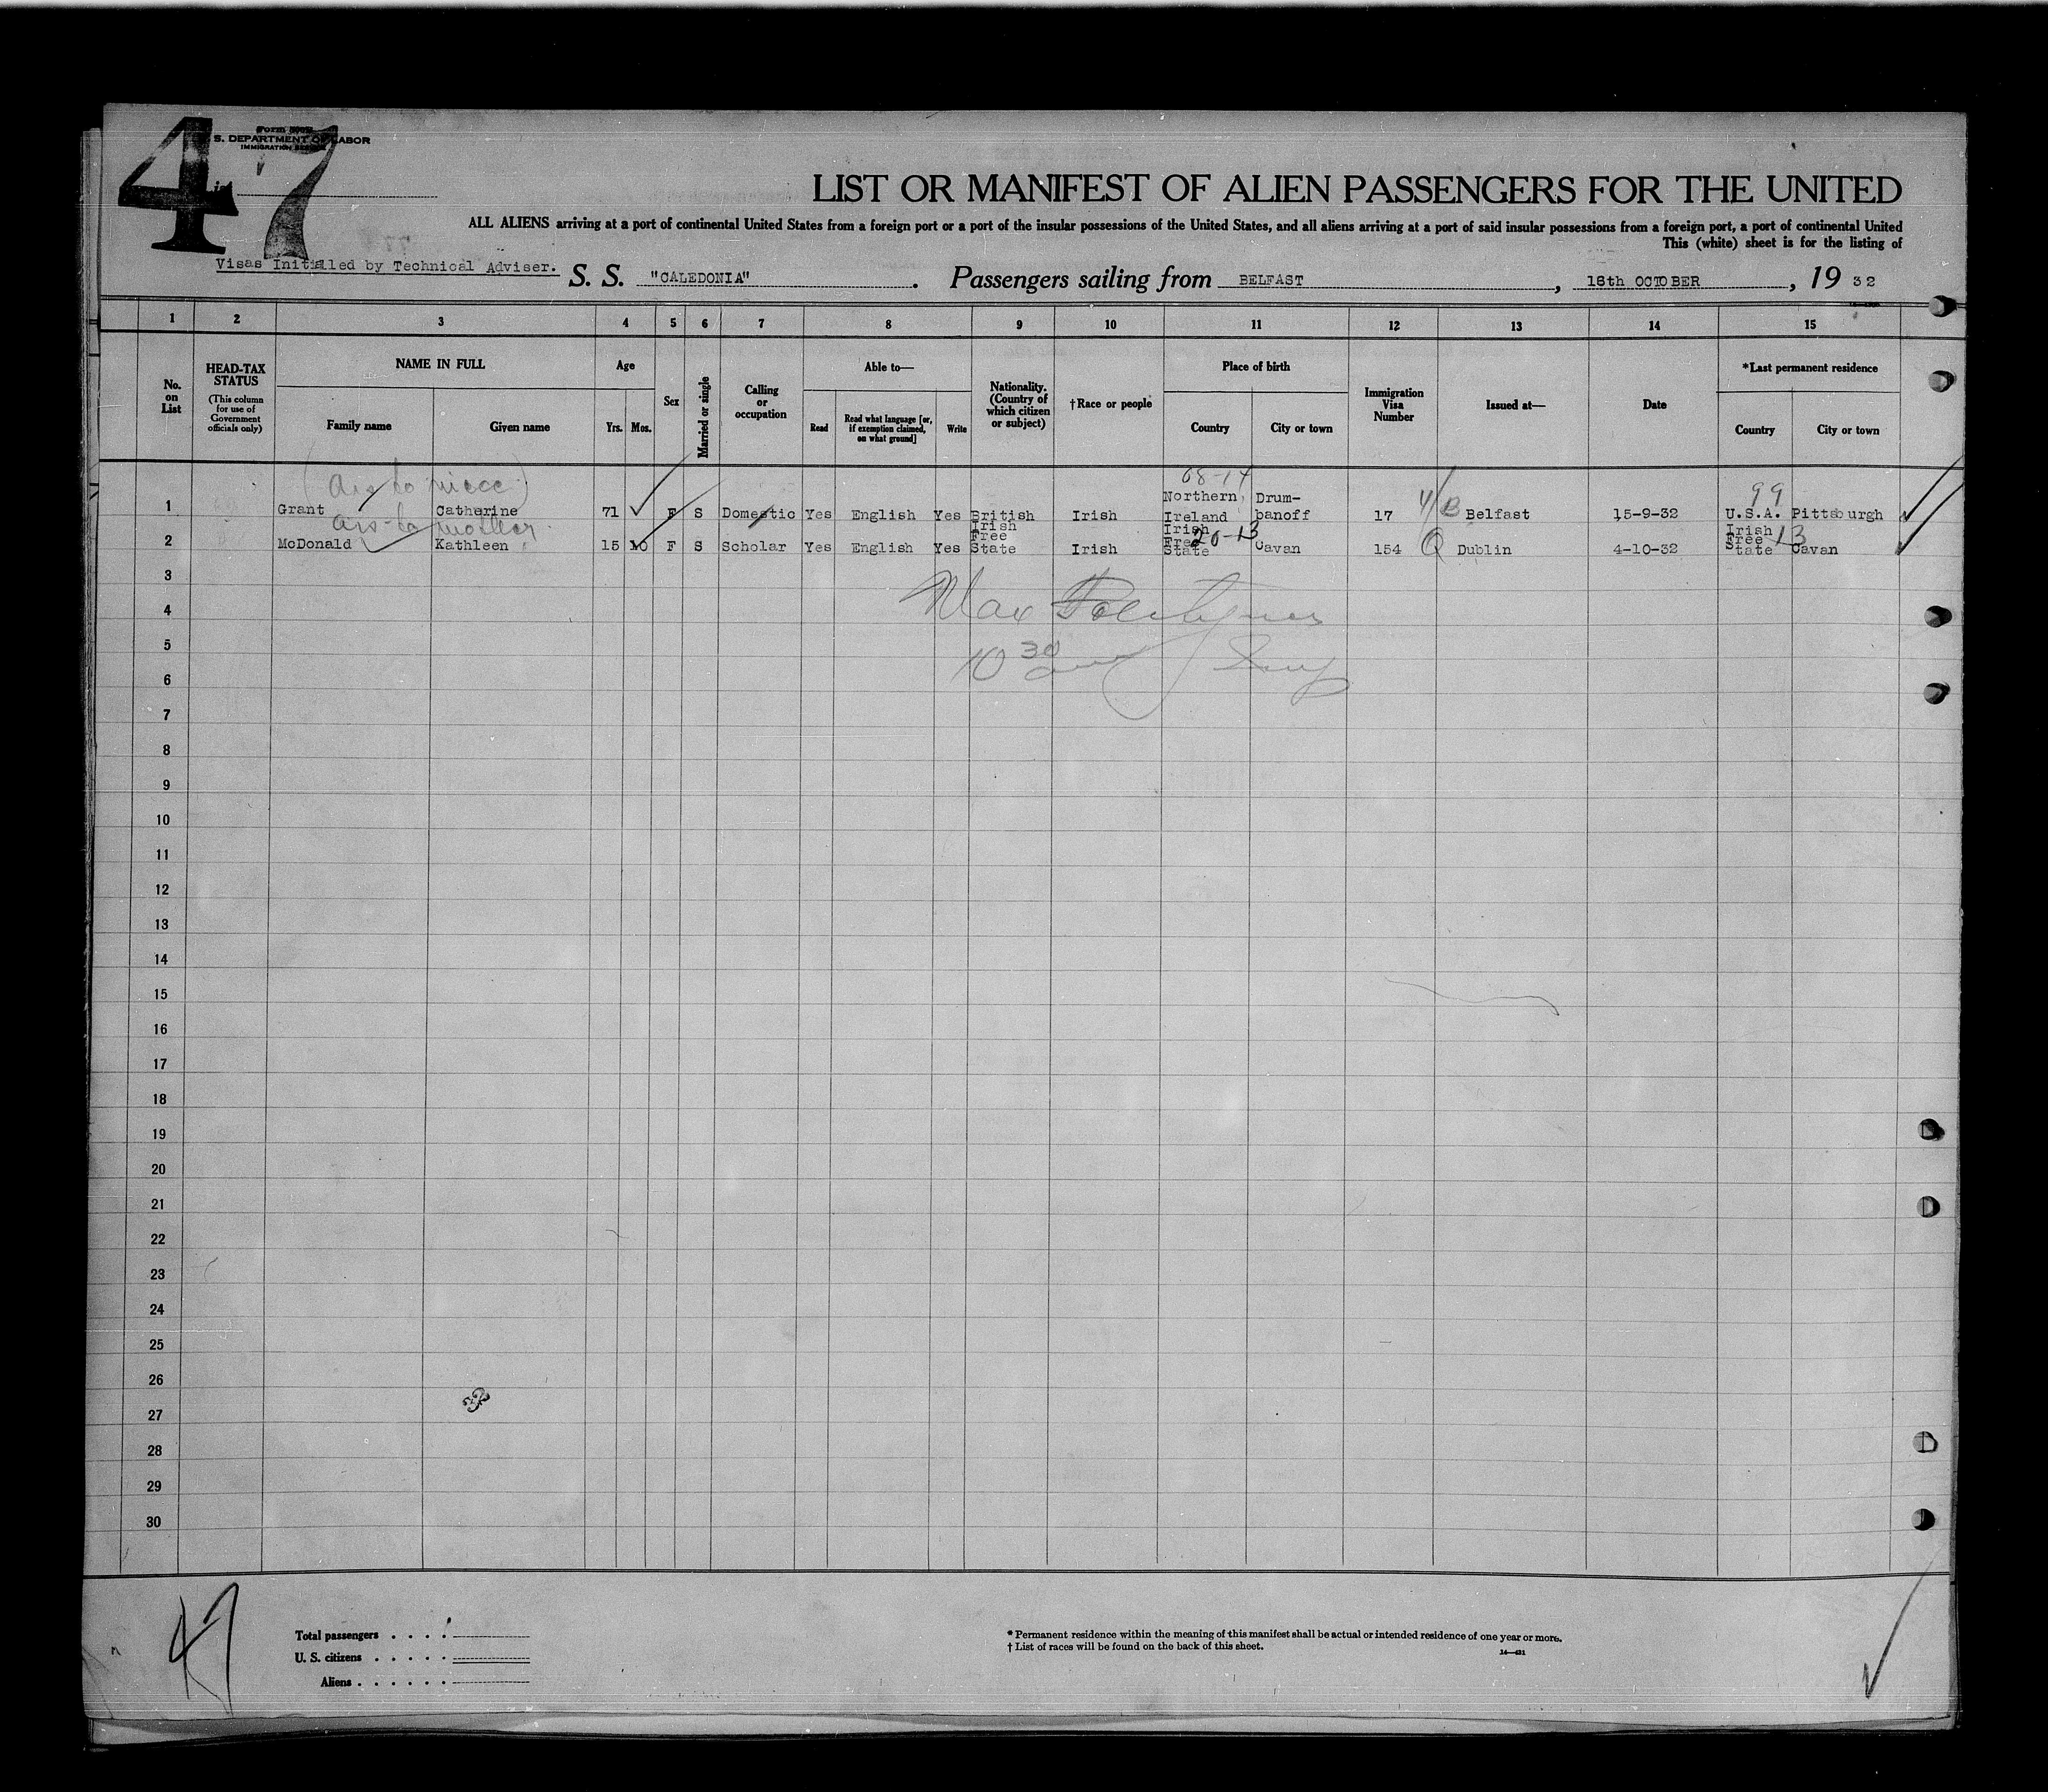 47
Form 500B
S. DEPARTMENT OF LABOR
IMMIGRATION SERVICE
LIST OR MANIFEST OF ALIEN PASSENGERS FOR THE UNITED
ALL ALIENS arriving at a port of continental United States from a foreign port or a port of the insular possessions of the United States, and all aliens arriving at a port of said insular possessions from a foreign port, a port of continental United
This (white) sheet is for the listing of
Visas Initialled by Technical Adviser.
S. S. "CALEDONIA". Passengers sailing from BELFAST, 18th OCTOBER, 19 32
1 2 3 4 5 6 7 8 9 10 11 12 13 14 15
No. on List
HEAD-TAX STATUS (This column for use of Government officials only)
NAME IN FULL
Family name Given name
Age
Yrs. Mos.
Sex
Married or single
Calling or occupation
Able to—
Read
Read what language [or, if exemption claimed, on what ground]
Write
Nationality. (Country of which citizen or subject)
†Race or people
Place of birth
Country City or town
Immigration Visa Number
Issued at—
Date
*Last permanent residence
Country City or town
(ais to niece) 08-14 99
1 Grant Catherine 71 F S Domestic Yes English Yes British Irish Northern Ireland Drum-banoff 17 Belfast 15-9-32 U.S.A. Pittsburgh
ais-to mother 20-13 13
2 McDonald Kathleen 15 10 F S Scholar Yes English Yes Irish Free State Irish Irish Free State Cavan 154 Q Dublin 4-10-32 Irish Free State Cavan
3
4 Max
5 10 30
6
7
8
9
10
11
12
13
14
15
16
17
18
19
20
21
22
23
24
25
26
27
28
29
30
47
Total passengers . . . .
U. S. citizens . . . . .
Aliens . . . . . .
* Permanent residence within the meaning of this manifest shall be actual or intended residence of one year or more.
† List of races will be found on the back of this sheet.